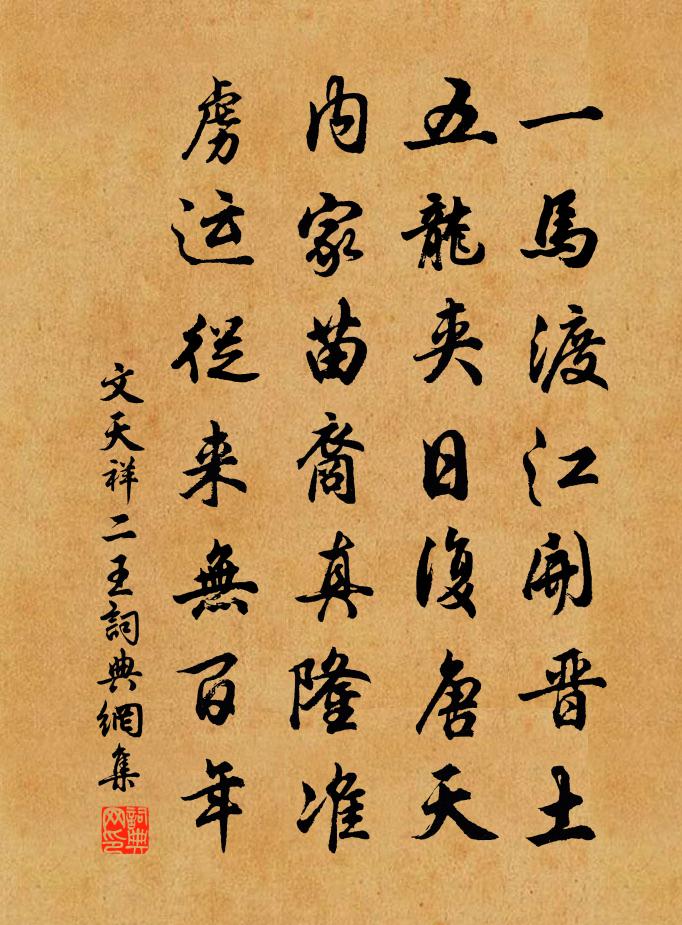 一馬渡江開晋土
五龍夾日復唐天
内家苗裔真隆准
虜运從来無百年
文天祥二王詞典網集
詞典网印